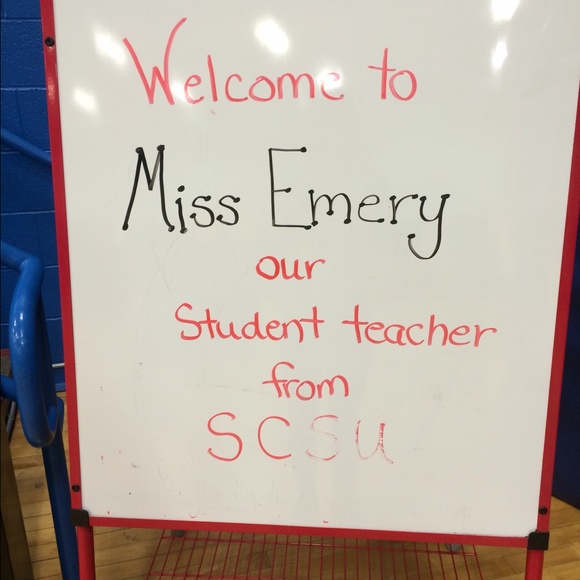 Welcome to
Miss Emery
our
Student teacher
from
SCSU